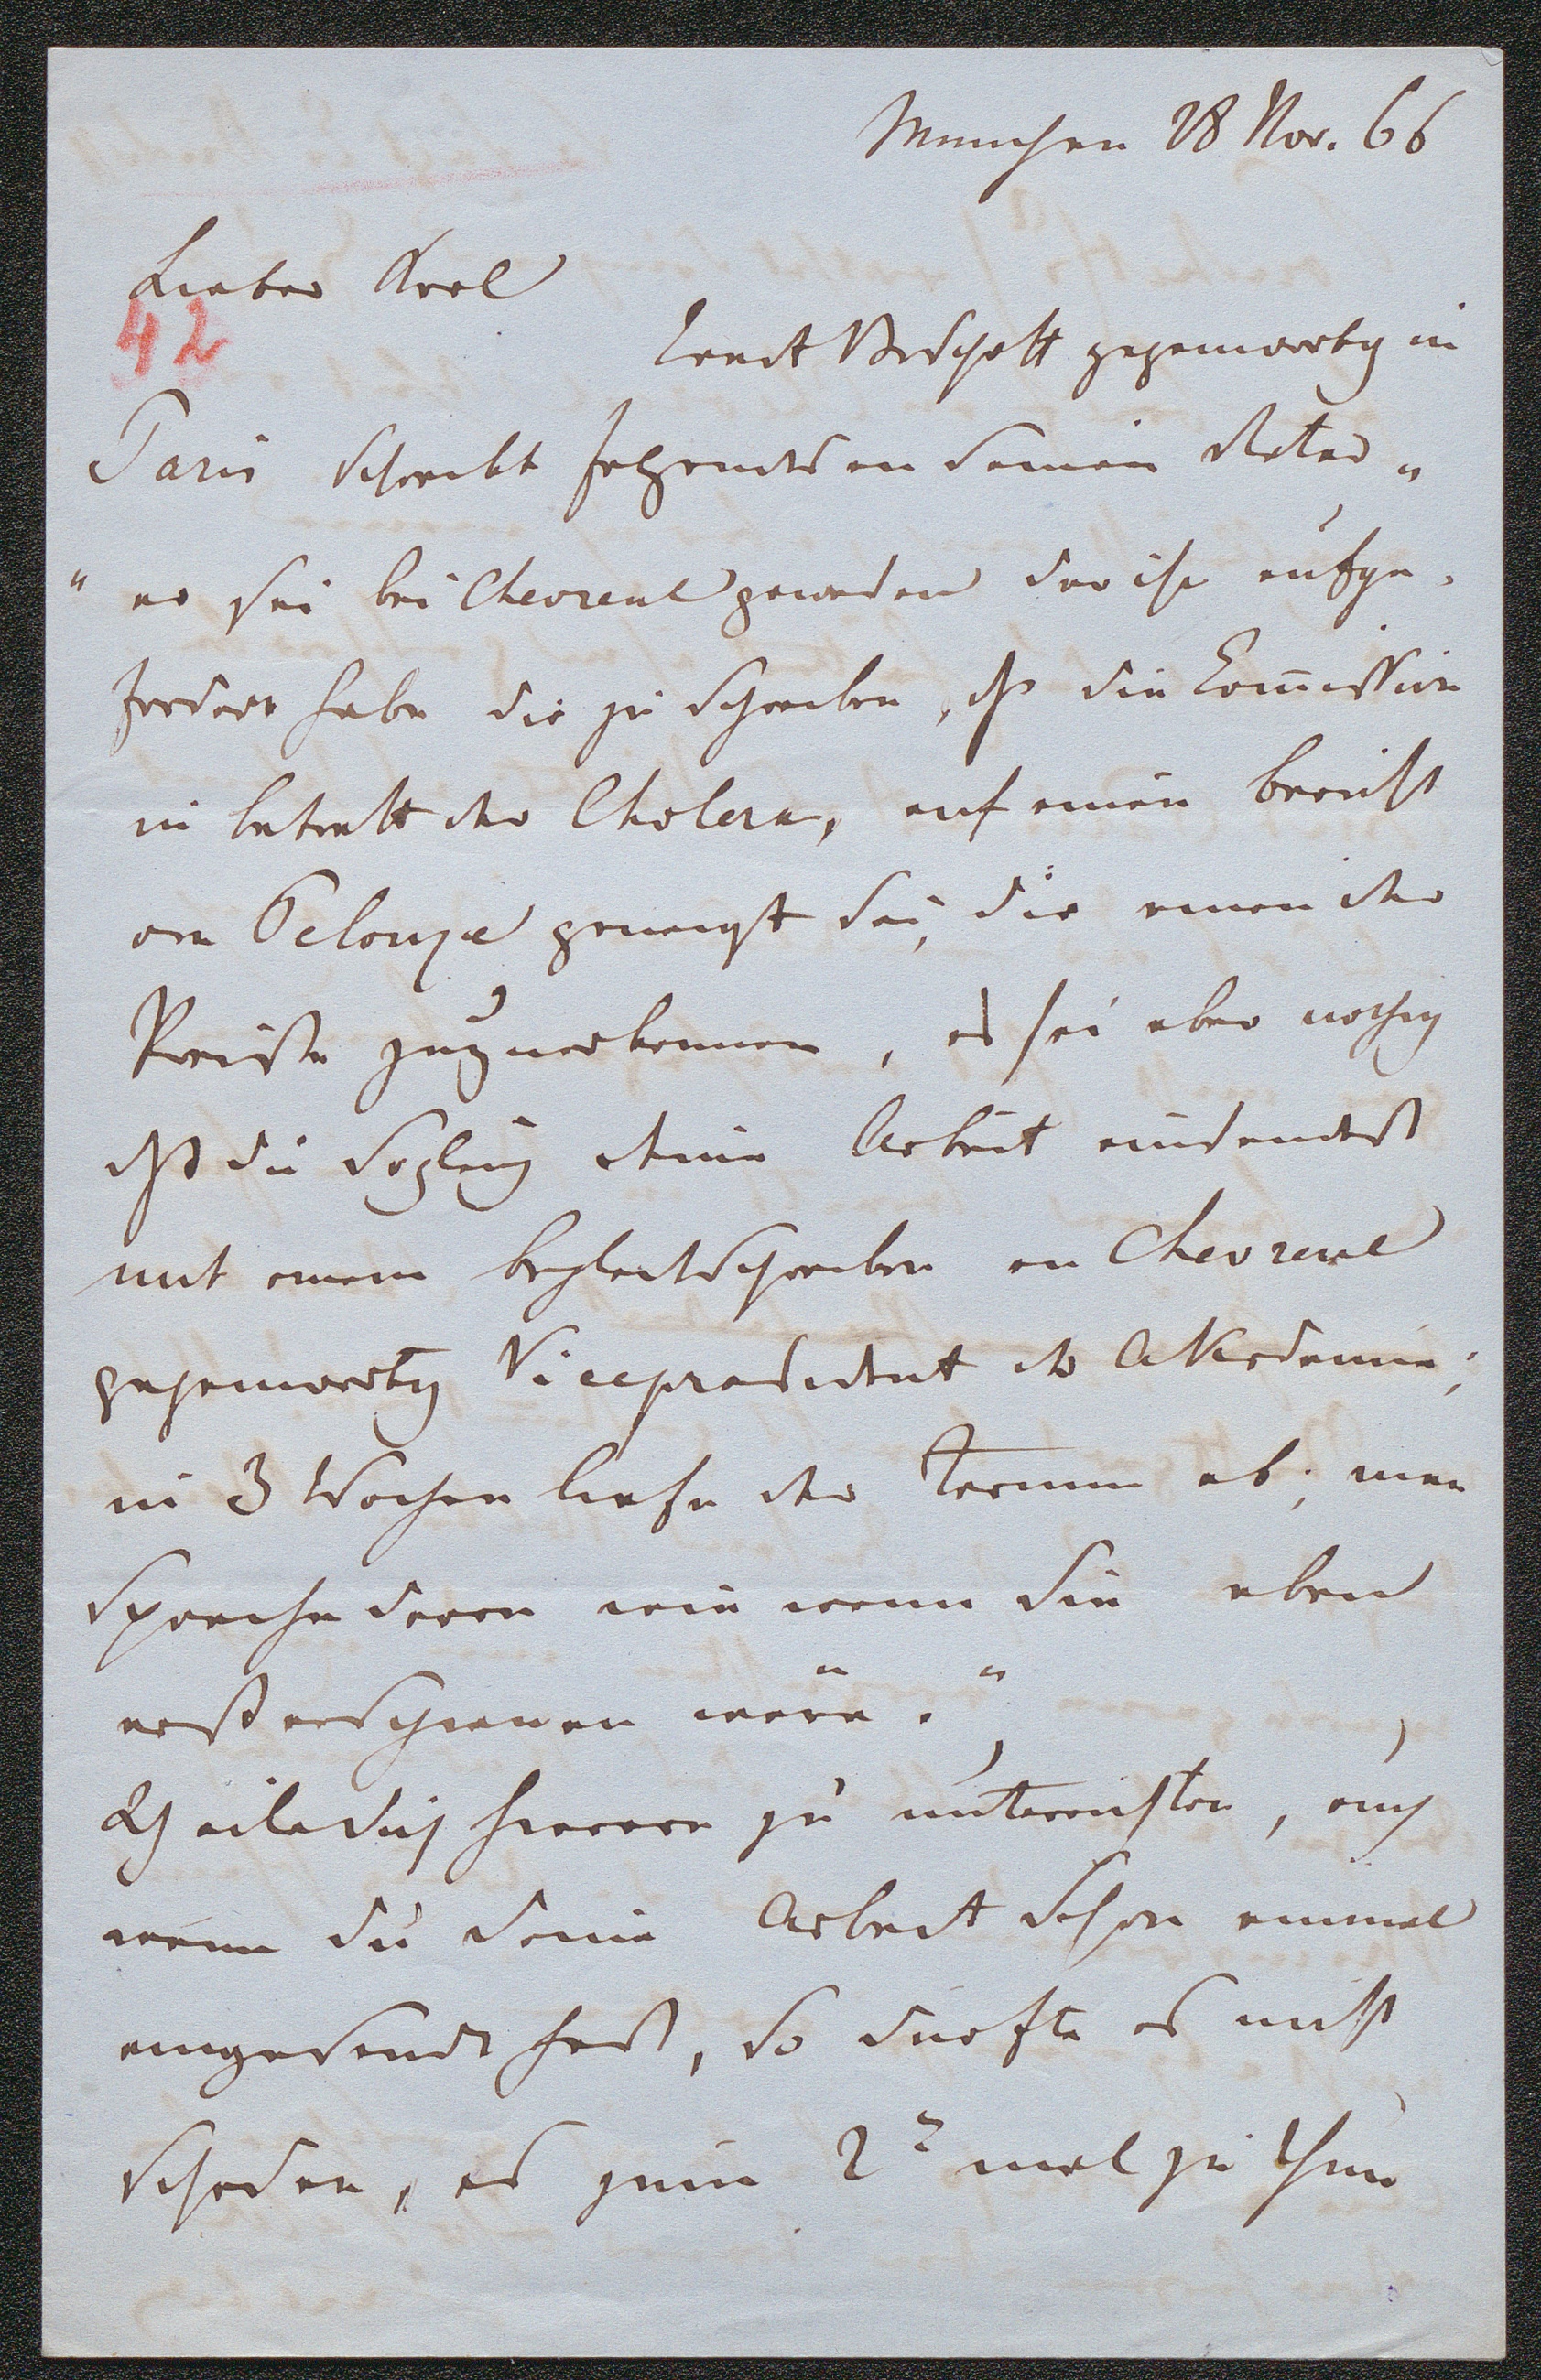 München 28 Nov. 66
Lieber Karl
42
Ernst Bischoff gegenwärtig in
Paris schreibt folgendes an seinen Vater „
" er sei bei Chevreul gewesen der ihn aufge-
fordert habe dir zu schreiben, daß die Com̅ission
in betreff der Cholera, auf einen Bericht
von Pelouze geneigt sei, dir einen der
Preiße zuzuerkennen, es sei aber nöthig
daß du sogleich deine Arbeit einsendest
mit einem Begleitschreiben an Chevreul
gegenwärtig Vicepräsident der Akademie;
in 3 Wochen liefe der Termin ab; man
spreche davon wie wenn sie eben
erst erschienen wäre."
Ich eile dich hievon zu unterrichten, auch
wenn du deine Arbeit schon einmal
eingesendt hast, so dürfte es nicht
schaden, es zum 2ᵗ mal zu thun